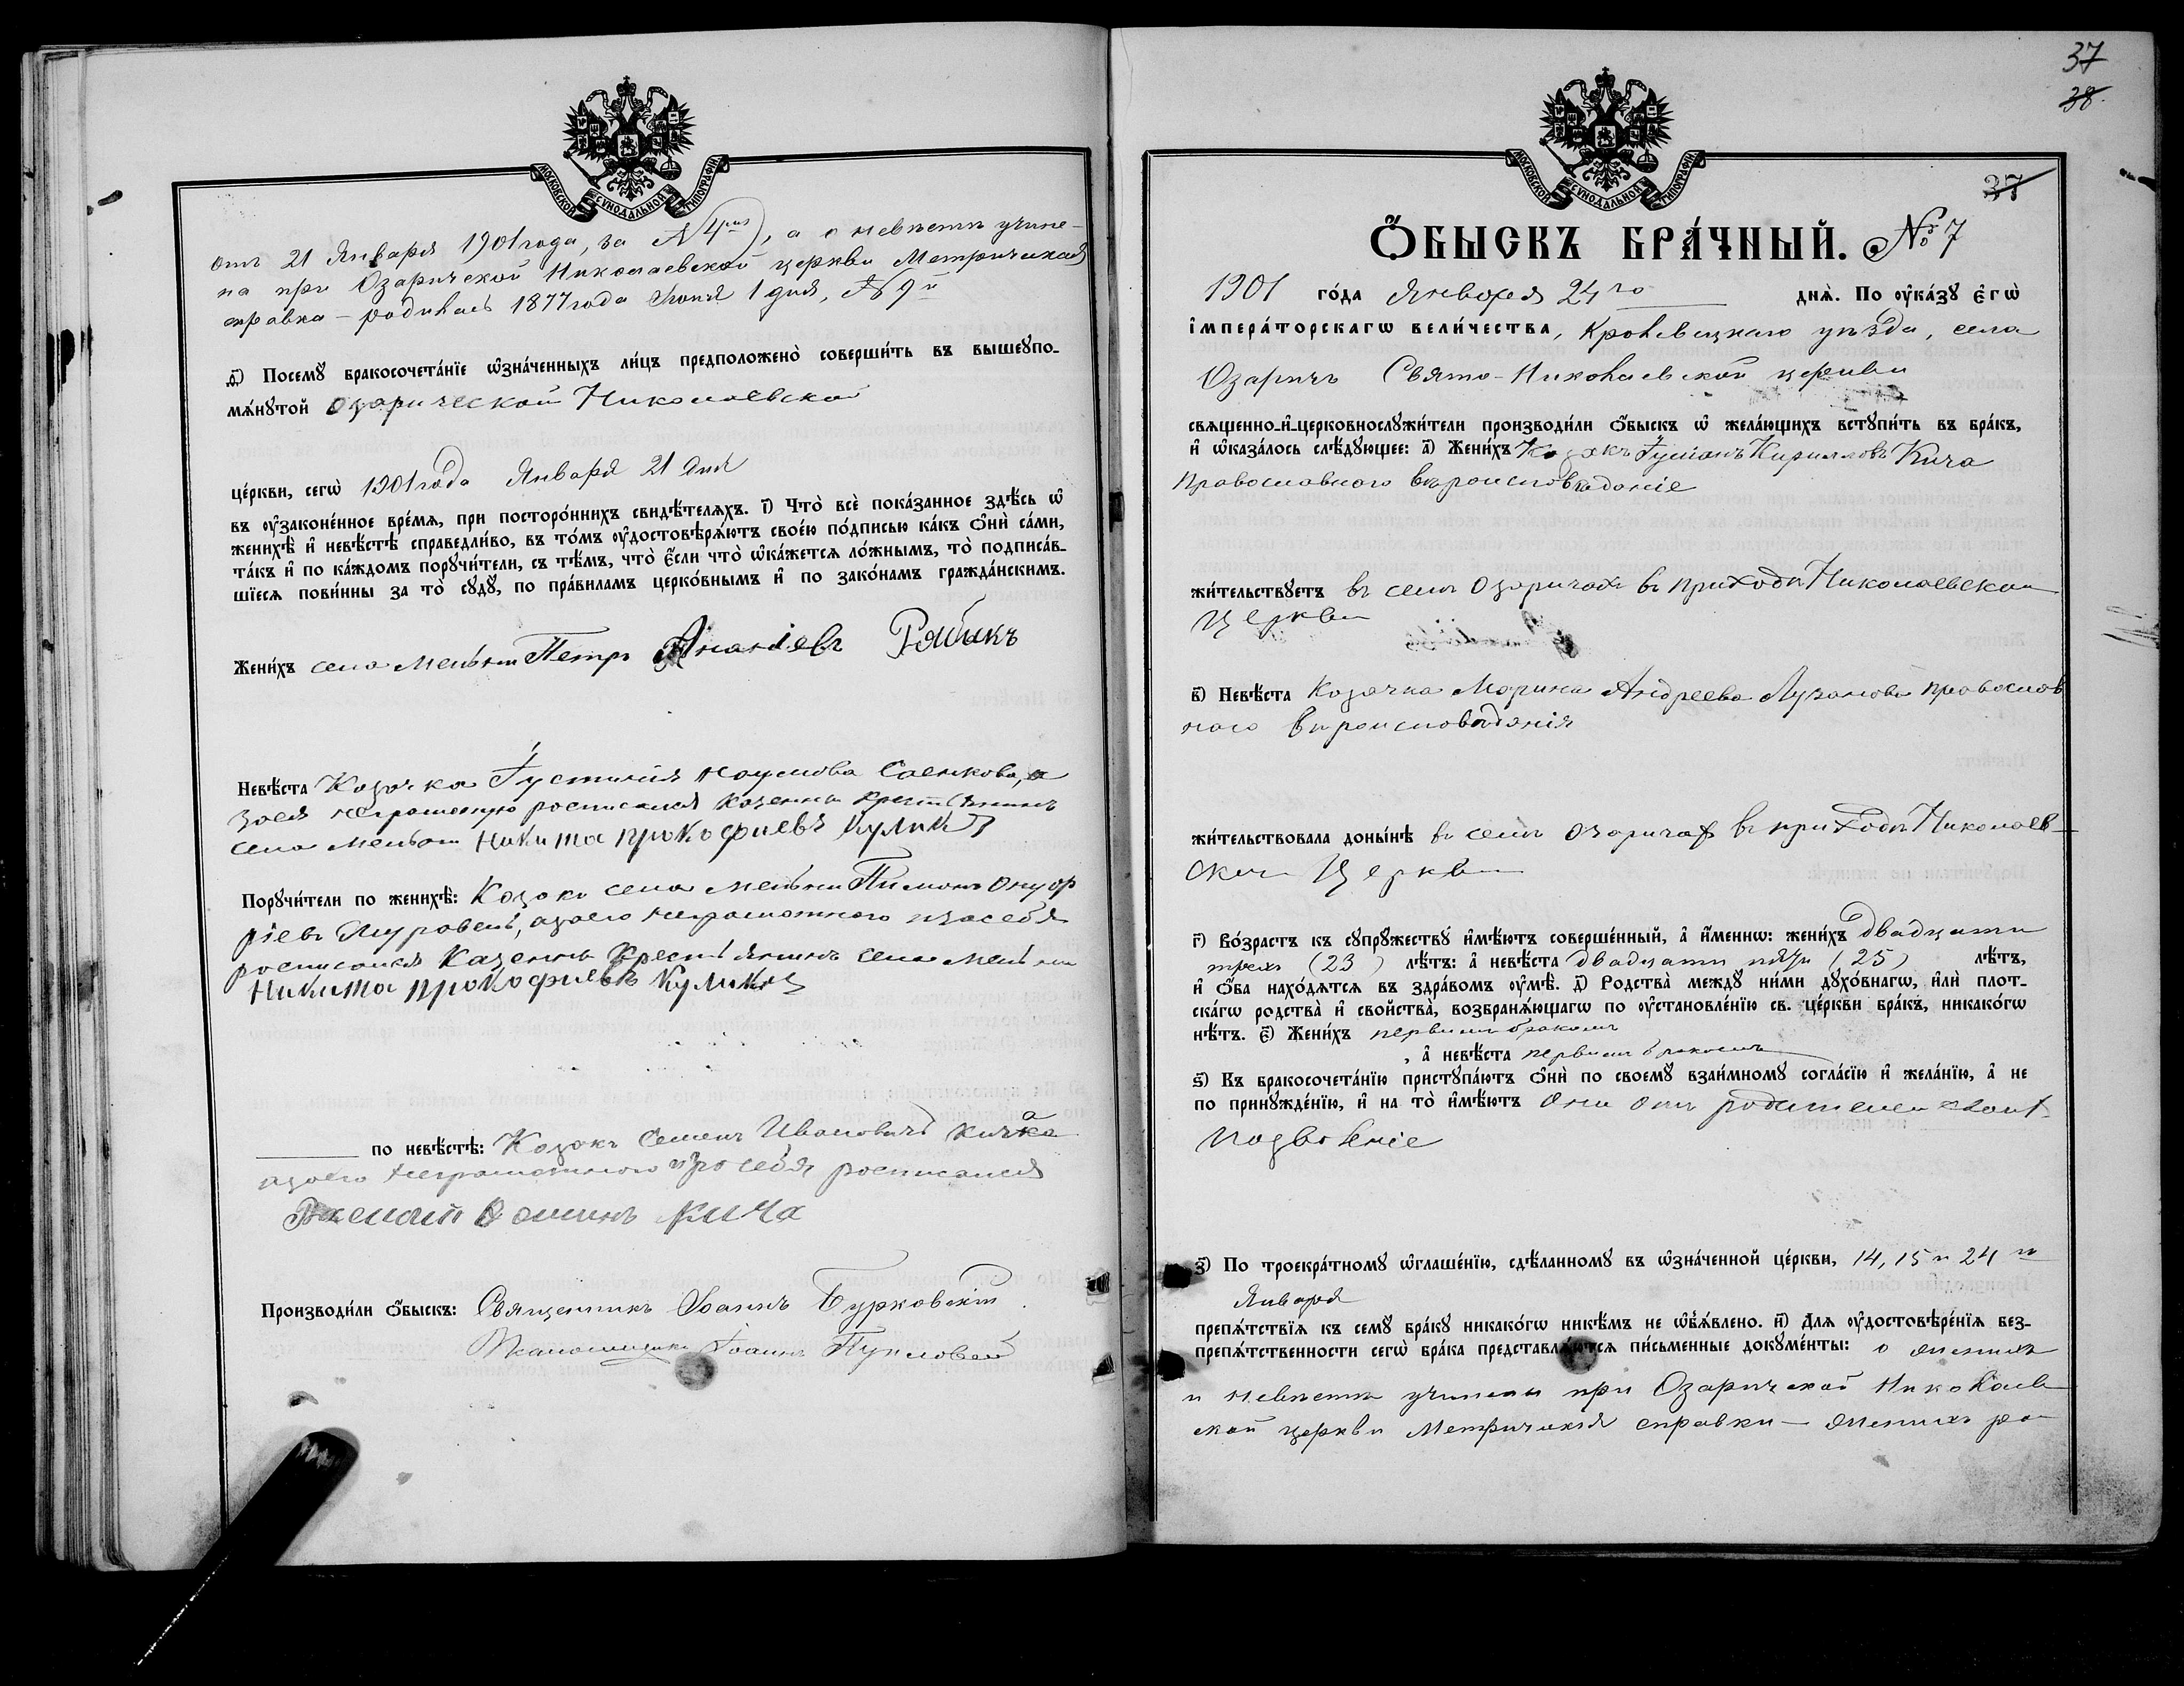 МОСКОВСКОЙ СѴНОДАЛЬНОЙ ТИПОГРАФІИ
отъ 21 Января 1901 года, за № 4мъ), а о невѣстѣ учине-
на при Озарической Николаевской церкви Метрическая
справка – родилась 1877 года Іюня 1 дня, № 9й
Посемꙋ бракосочета́нїе ѡ҆зна́ченныхъ ли́цъ предположено̀ соверши́ть въ вышеꙋпо-
мѧ́нꙋтой Озарической Николаевской
це́ркви, сегѡ̀ 1901 года Января 21 дня
въ ᲂу҆законе́нное вре́мѧ, при посторо́ннихъ свидѣ́телѧхъ. і҃) Что̀ всѐ пока́занное здѣ́сь ѡ҆
женихѣ̀ и҆ невѣ́стѣ справедли́во, въ то́мъ ᲂу҆достовѣрѧ́ютъ свое́ю по́дписью ка́къ ѻ҆нѝ са́ми,
та́къ и҆ по ка́ждомъ порꙋчи́тели, съ тѣ́мъ, что̀ є҆́сли что̀ ѡ҆ка́жетсѧ ло́жнымъ, то̀ подписа́в-
шїесѧ пови́нны за то̀ сꙋдꙋ̀, по пра́виламъ церко́внымъ и҆ по зако́намъ гражда́нскимъ.
Жени́хъ села Мельни Петръ Ананіевъ Рябикъ
Невѣ́ста Козачка Іустинія Наумова Саенкова, а
за ея неграмотную росписался казенны крестьянинъ
села Мельни Никита Прокофиевъ Куликъ
Порꙋчи́тели по женихѣ̀: Козаки села Мельни Пимонъ Онуф
ріевъ Муравель, а за его неграмотного и за себя
росписался Казенны Крестьянинъ села Мельни
Никита Прокофиевъ Куликъ
по невѣ́стѣ: Козакъ Семенъ Ивановичъ Кича
а за его неграмотного и за себя росписался
Кича
Производи́ли ѻ҆́быскъ: Священникъ Іоаннъ Бурковскій
Псаломщикъ Іоаннъ
37
38
МОСКОВСКОЙ СѴНОДАЛЬНОЙ ТИПОГРАФІИ
37
Ѻ҆́БЫСКЪ БРА́ЧНЫЙ. № 7
1901 го́да Января 24го днѧ̀. По ᲂу҆ка́зꙋ є҆гѡ̀
і҆мпера́торскагѡ вели́чества, Кролевецкаго уѣзда, села
Озаричъ Свято-Николаевской церкви
свѧщенно-и҆-церковнослꙋжи́тели производи́ли ѻ҆́быскъ ѡ҆ жела́ющихъ встꙋпи́ть въ бра́къ,
и҆ ѡ҆каза́лось слѣ́дꙋющее: а҃) Жени́хъ Козакъ Кирилловъ Кича
Православного вѣроисповѣданіе
жи́тельствꙋетъ въ селѣ Озаричахъ въ приходѣ Николаевской
Церкви
в҃) Невѣ́ста Козачка Марина Андреева православ
ного вѣроисповѣданія
жи́тельствовала доны́нѣ въ селѣ Озаричах въ приходѣ Николаев-
ской Церкви
г҃) Во́зрастъ къ сꙋпрꙋжествꙋ̀ и҆мѣ́ютъ соверше́нный, а҆ и҆́меннѡ: жени́хъ двадцати
трехъ (23) лѣ́тъ: а҆ невѣ́ста двадцати пяти (25) лѣ́тъ,
и҆ ѻ҆́ба нахо́дѧтсѧ въ здра́вомъ ᲂу҆мѣ̀. д҃) Родства̀ междꙋ̀ ни́ми дꙋхо́внагѡ, и҆лѝ плот-
ска́гѡ родства̀ и҆ сво́йства, возбранѧ́ющагѡ по ᲂу҆становле́нїю св. це́ркви бра́къ, никако́гѡ
нѣ́тъ. є҃) Жени́хъ первымъ бракомъ
, а҆ невѣ́ста первымъ бракомъ
ѕ҃) Къ бракосочета́нїю пристꙋпа́ютъ ѻ҆нѝ по своемꙋ̀ взаи́мномꙋ согла́сїю и҆ жела́нїю, а҆ не
по принꙋжде́нїю, и҆ на то̀ и҆мѣ́ютъ они отъ родителей своих
позволеніе
з҃) По троекра́тномꙋ ѡ҆глаше́нїю, сдѣ́ланномꙋ въ ѡ҆зна́ченной це́ркви, 14, 15 и 24 го
Января
препѧ́тствїѧ къ семꙋ̀ бра́кꙋ никако́гѡ никѣ́мъ не ѡ҆б̾ѧ́влено. и҃) Длѧ ᲂу҆достовѣре́нїѧ без-
препѧ́тственности сегѡ̀ бра́ка представлѧ́ютсѧ пи́сьменные докꙋме́нты: о женихѣ
и невѣстѣ учинены при Озарической Николаев
ской церкви Метрическія справки – женихъ ро-